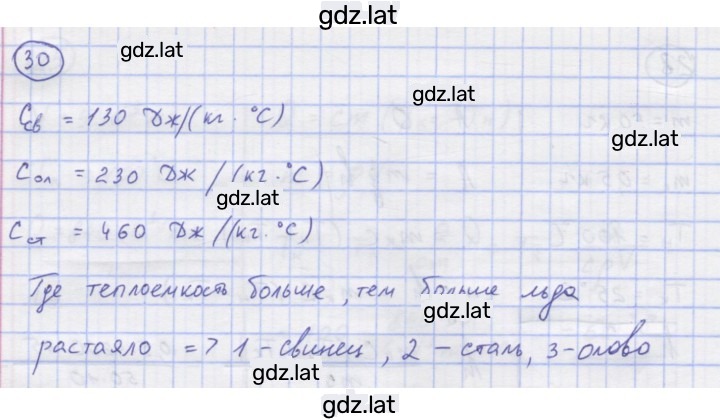 gdz.lat
30
gdz.lat
gdz.lat
Cсв = 130 Дж/(кг·°C)
gdz.lat
Cол = 230 Дж/(кг·°C)
gdz.lat
Cст = 460 Дж/(кг·°C)
Где теплоемкость больше, тем больше льда
gdz.lat
растаяло => 1 - свинец, 2 - сталь, 3 - олово
gdz.lat
gdz.lat